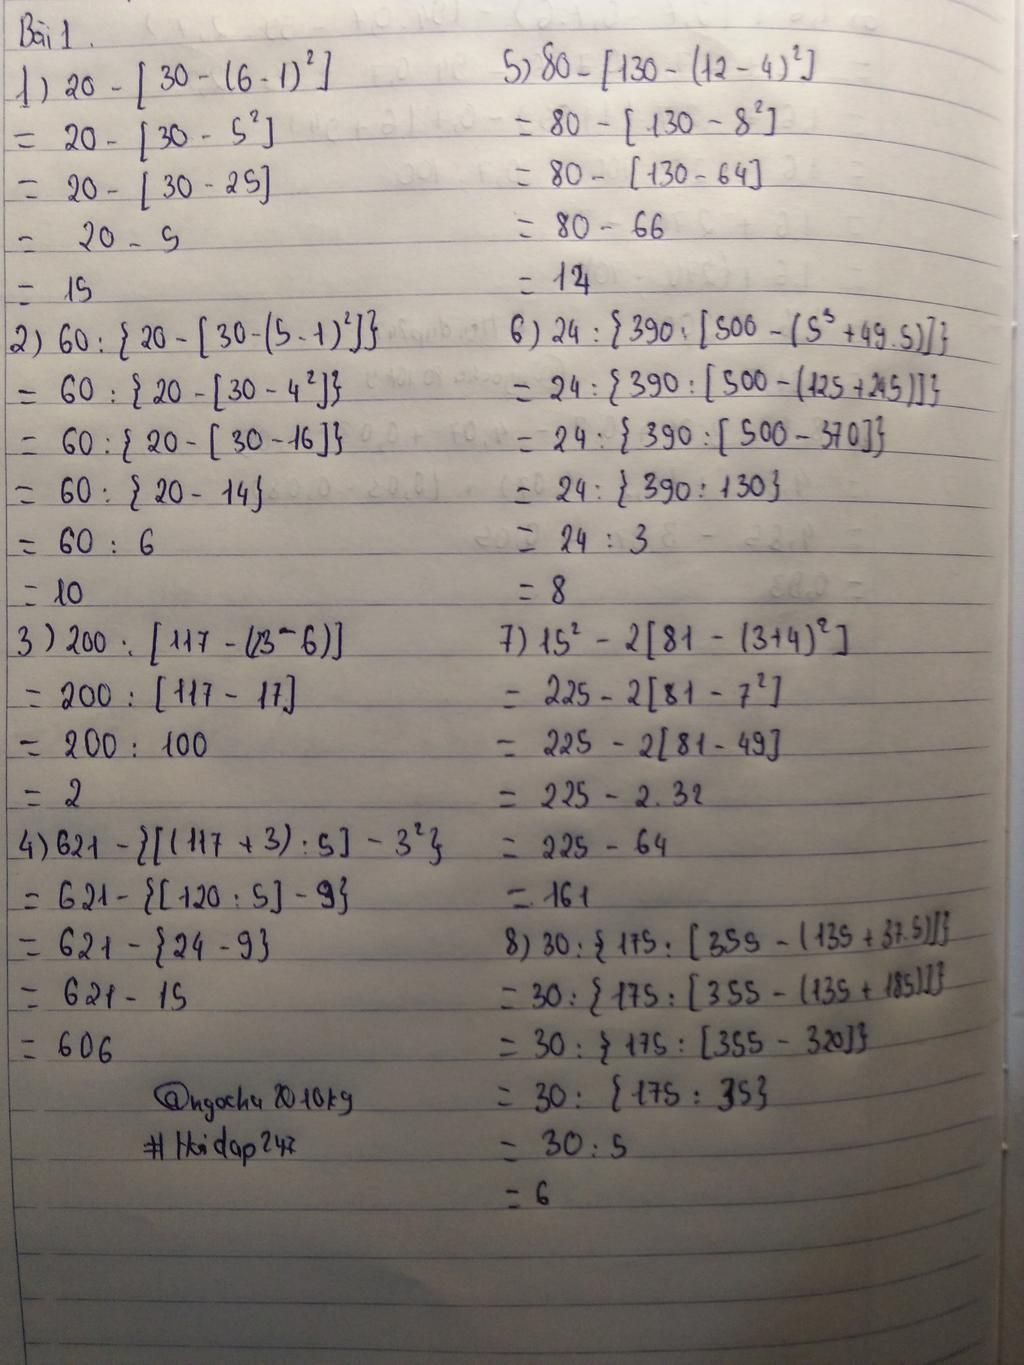 Bài 1.
1) 20 - [30 - (6 - 1)²]
= 20 - [30 - 5²]
= 20 - [30 - 25]
= 20 - 5
= 15
2) 60 : {20 - [30 - (5 - 1)²]}
= 60 : {20 - [30 - 4²]}
= 60 : {20 - [30 - 16]}
= 60 : {20 - 14}
= 60 : 6
= 10
3) 200 : [117 - (23 - 6)]
= 200 : [117 - 17]
= 200 : 100
= 2
4) 621 - {[(117 + 3) : 5] - 3²}
= 621 - {[120 : 5] - 9}
= 621 - {24 - 9}
= 621 - 15
= 606
@ngochu2010kg
#Hoidap247
5) 80 - [130 - (12 - 4)²]
= 80 - [130 - 8²]
= 80 - [130 - 64]
= 80 - 66
= 14
6) 24 : {390 : [500 - (5³ + 49.5)]}
= 24 : {390 : [500 - (125 + 245)]}
= 24 : {390 : [500 - 370]}
= 24 : {390 : 130}
= 24 : 3
= 8
7) 15² - 2[81 - (3+4)²]
= 225 - 2[81 - 7²]
= 225 - 2[81 - 49]
= 225 - 2.32
= 225 - 64
= 161
8) 30 : {175 : [355 - (135 + 37.5)]}
= 30 : {175 : [355 - (135 + 185)]}
= 30 : {175 : [355 - 320]}
= 30 : {175 : 35}
= 30 : 5
= 6